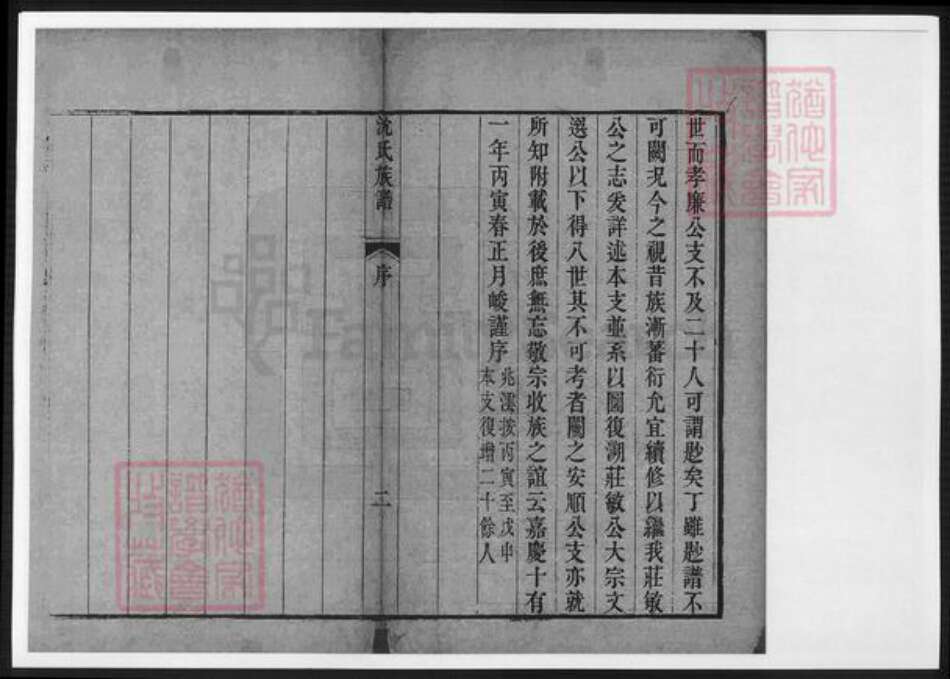 世而孝廉公支不及二十人可謂尟矣丁雖尟譜不
可闕況今之視昔族漸蕃衍允宜續修以繼我莊敏
公之志爰詳述本支並系以圖復溯莊敏公大宗文
選公以下得八世其不可考者闕之安順公支亦就
所知附載於後庶無忘敬宗收族之誼云嘉慶十有
一年丙寅春正月峻謹序
兆澐按丙寅至戊申
本支復增二十餘人
沈氏族譜
序
二
猶他家
譜學會